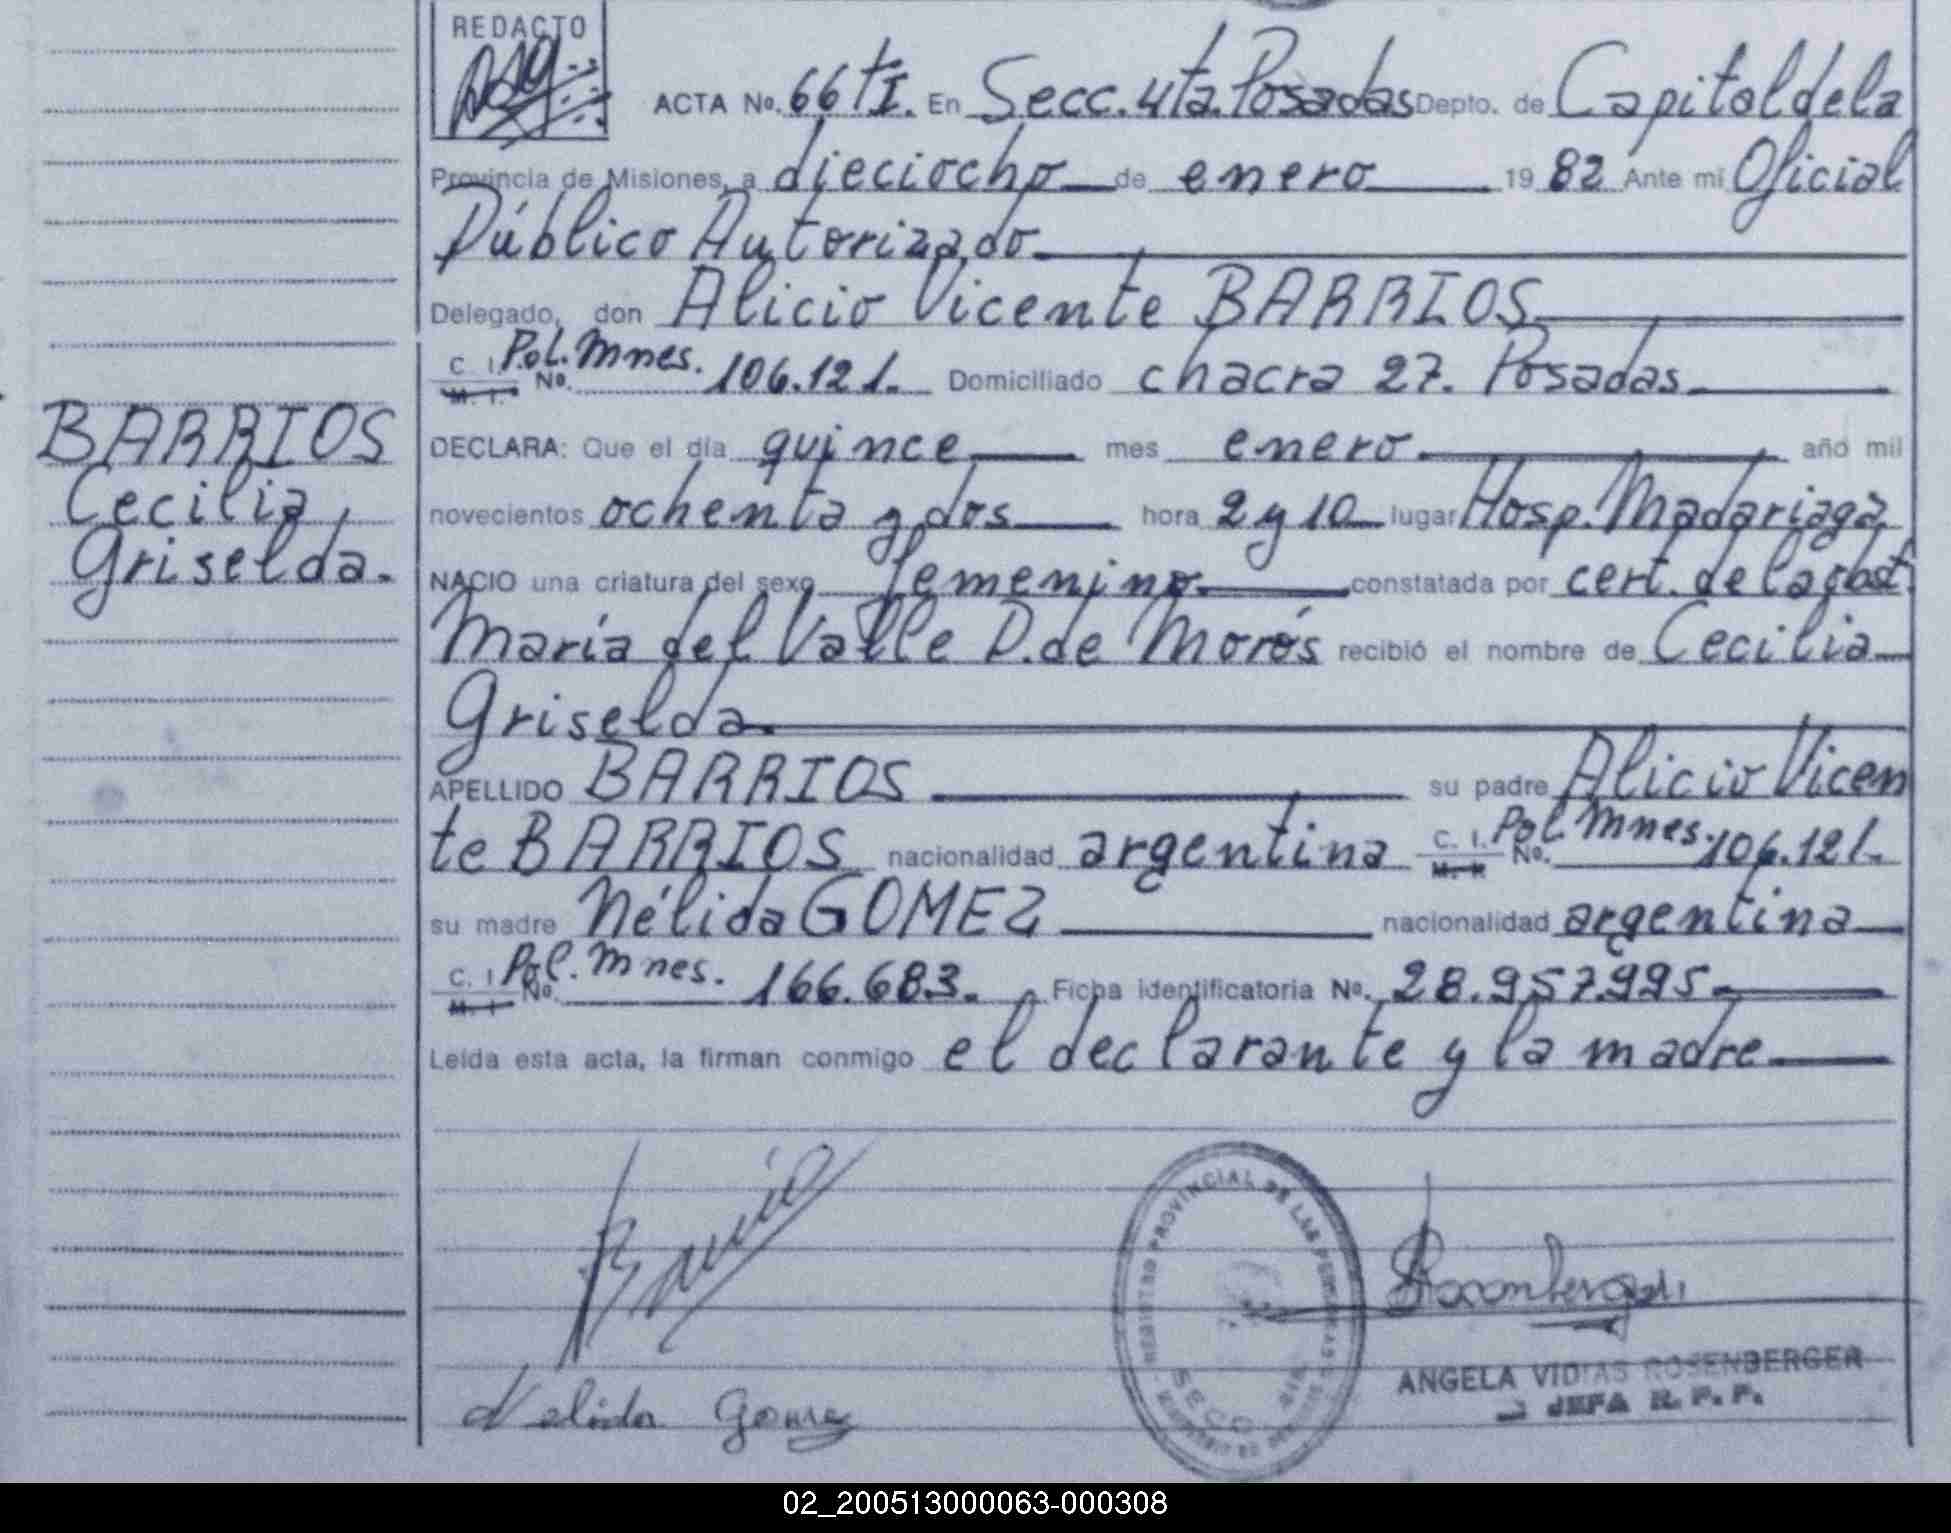 REDACTO
ACTA No. 66 tI. En Secc. 4ta. Posadas Depto. de Capital de la
Provincia de Misiones, a dieciocho de enero 19 82 Ante mi Oficial
Público Autorizado
Delegado, don Alicio Vicente BARRIOS
C. I. Pol. Mnes.
M. I. No. 106.121. Domiciliado chacra 27. Posadas
BARRIOS
Cecilia
Griselda.
DECLARA: Que el día quince mes enero año mil
novecientos ochenta y dos hora 2 y 10 lugar Hosp. Madariaga
NACIO una criatura del sexo femenino constatada por cert. de la obst.
María del Valle D. de Morós recibió el nombre de Cecilia
Griselda.
APELLIDO BARRIOS su padre Alicio Vicen
te BARRIOS nacionalidad argentina C. I. Pol. Mnes. No. 106.121.
su madre Nélida GOMEZ nacionalidad argentina
C. I. Pol. Mnes.
M. I. No. 166.683. Ficha identificatoria No. 28.957.995
Leída esta acta, la firman conmigo el declarante y la madre
Barrios
Nelida Gomez
REGISTRO PROVINCIAL DE LAS PERSONAS
SECC 4ta
ANGELA VIDIAS ROSENBERGER
JEFA R. P. P.
02_200513000063-000308